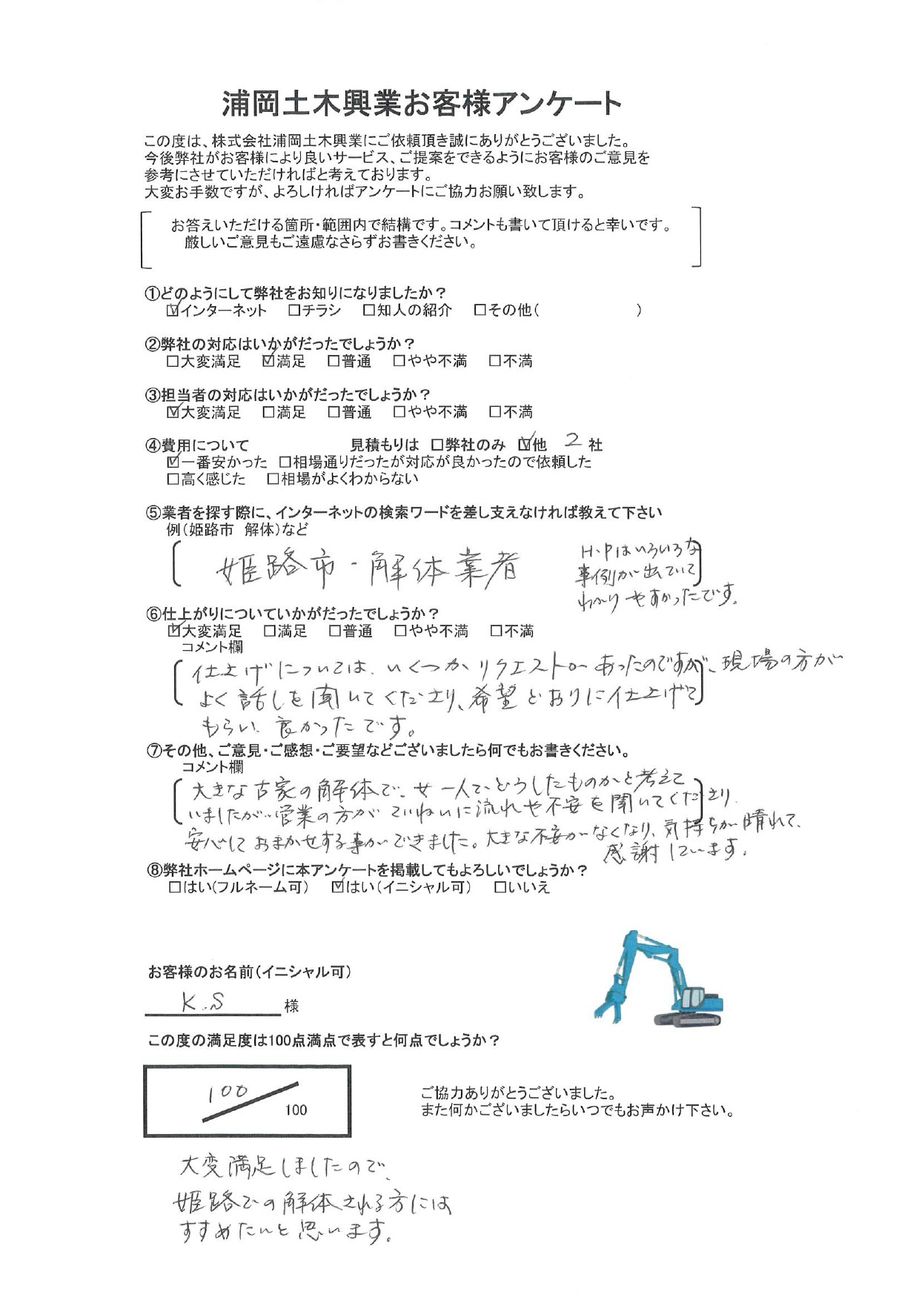 浦岡土木興業お客様アンケート
この度は、株式会社浦岡土木興業にご依頼頂き誠にありがとうございました。
今後弊社がお客様により良いサービス、ご提案をできるようにお客様のご意見を
参考にさせていただければと考えております。
大変お手数ですが、よろしければアンケートにご協力お願い致します。
お答えいただける箇所・範囲内で結構です。コメントも書いて頂けると幸いです。
厳しいご意見もご遠慮なさらずお書きください。
①どのようにして弊社をお知りになりましたか？
☑インターネット □チラシ □知人の紹介 □その他( )
②弊社の対応はいかがだったでしょうか？
□大変満足 ☑満足 □普通 □やや不満 □不満
③担当者の対応はいかがだったでしょうか？
☑大変満足 □満足 □普通 □やや不満 □不満
④費用について 見積もりは □弊社のみ ☑他 2 社
☑一番安かった □相場通りだったが対応が良かったので依頼した
□高く感じた □相場がよくわからない
⑤業者を探す際に、インターネットの検索ワードを差し支えなければ教えて下さい
例(姫路市 解体)など
姫路市・解体業者
H・Pはいろいろな
事例が出ていて
わかりやすかったです。
⑥仕上がりについていかがだったでしょうか？
☑大変満足 □満足 □普通 □やや不満 □不満
コメント欄
仕上げについては、いくつかリクエストがあったのですが、現場の方が
よく話しを聞いてくださり、希望どおりに仕上げて
もらい、良かったです。
⑦その他、ご意見・ご感想・ご要望などございましたら何でもお書きください。
コメント欄
大きな古家の解体で、女一人でどうしたものかと考えて
いましたが、営業の方がていねいに流れや不安を聞いてくださり、
安心しておまかせする事ができました。大きな不安がなくなり、気持ちが晴れて、
感謝しています。
⑧弊社ホームページに本アンケートを掲載してもよろしいでしょうか？
□はい(フルネーム可) ☑はい(イニシャル可) □いいえ
お客様のお名前(イニシャル可)
K.S 様
この度の満足度は100点満点で表すと何点でしょうか？
100/100
ご協力ありがとうございました。
また何かございましたらいつでもお声かけ下さい。
大変満足しましたので、
姫路での解体される方には
すすめたいと思います。